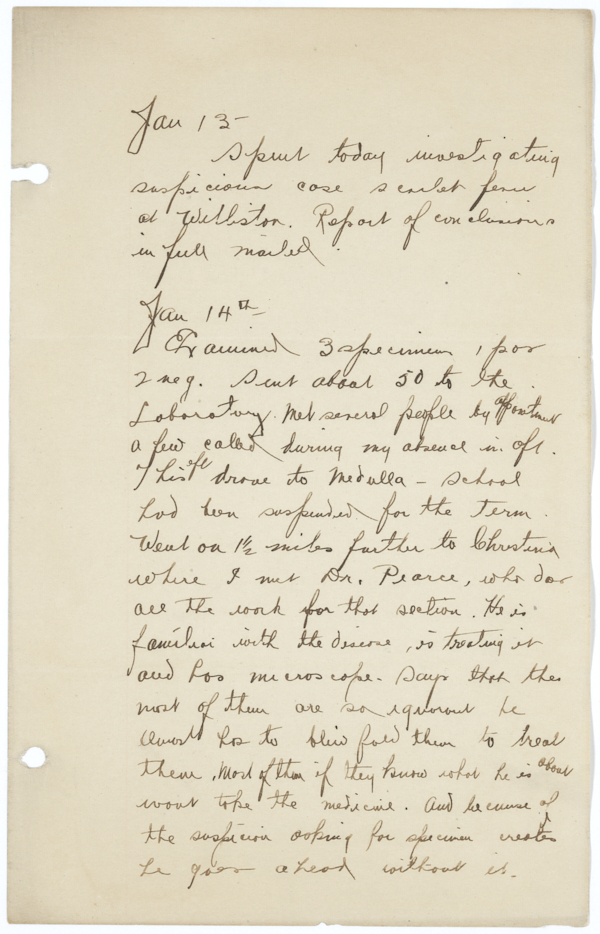 Jan 13-
Spent today investigating
suspicious case scarlet fever
at Williston. Report of conclusions
in full mailed.
Jan 14th-
Examined 3 specimens 1 pos
2 neg. Sent about 50 to the
Laboratory. Met several people by appointment
a few called during my absence in aft.
This aft drove to Medulla - school
had been suspended for the term.
Went on 1½ miles further to Christina
where I met Dr. Pearce, who does
all the work for that section. He is
familiar with the disease, is treating it
and has microscope. Says that the
most of them are so ignorant he
almost has to blind fold them to treat
them. Most of them if they know what he is about
wont take the medicine. And because of
the suspicion asking for specimen creates
he goes ahead without it.